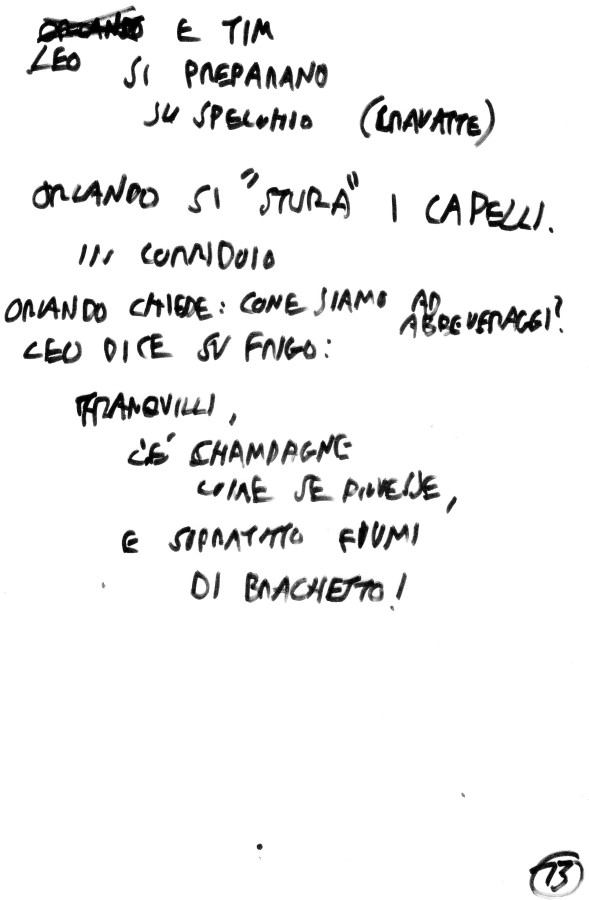 ORLANDO E TIM
LEO
SI PREPARANO
SU SPECCHIO (CRAVATTE)
ORLANDO SI "STURA" I CAPELLI.
IN CORRIDOIO
ORLANDO CHIEDE: COME SIAMO AD
ABBEVERAGGI?
LEO DICE SU FRIGO:
TRANQUILLI,
C'È CHAMPAGNE
COME SE PIOVESSE,
E SOPRATUTTO FIUMI
DI BRACHETTO!
13